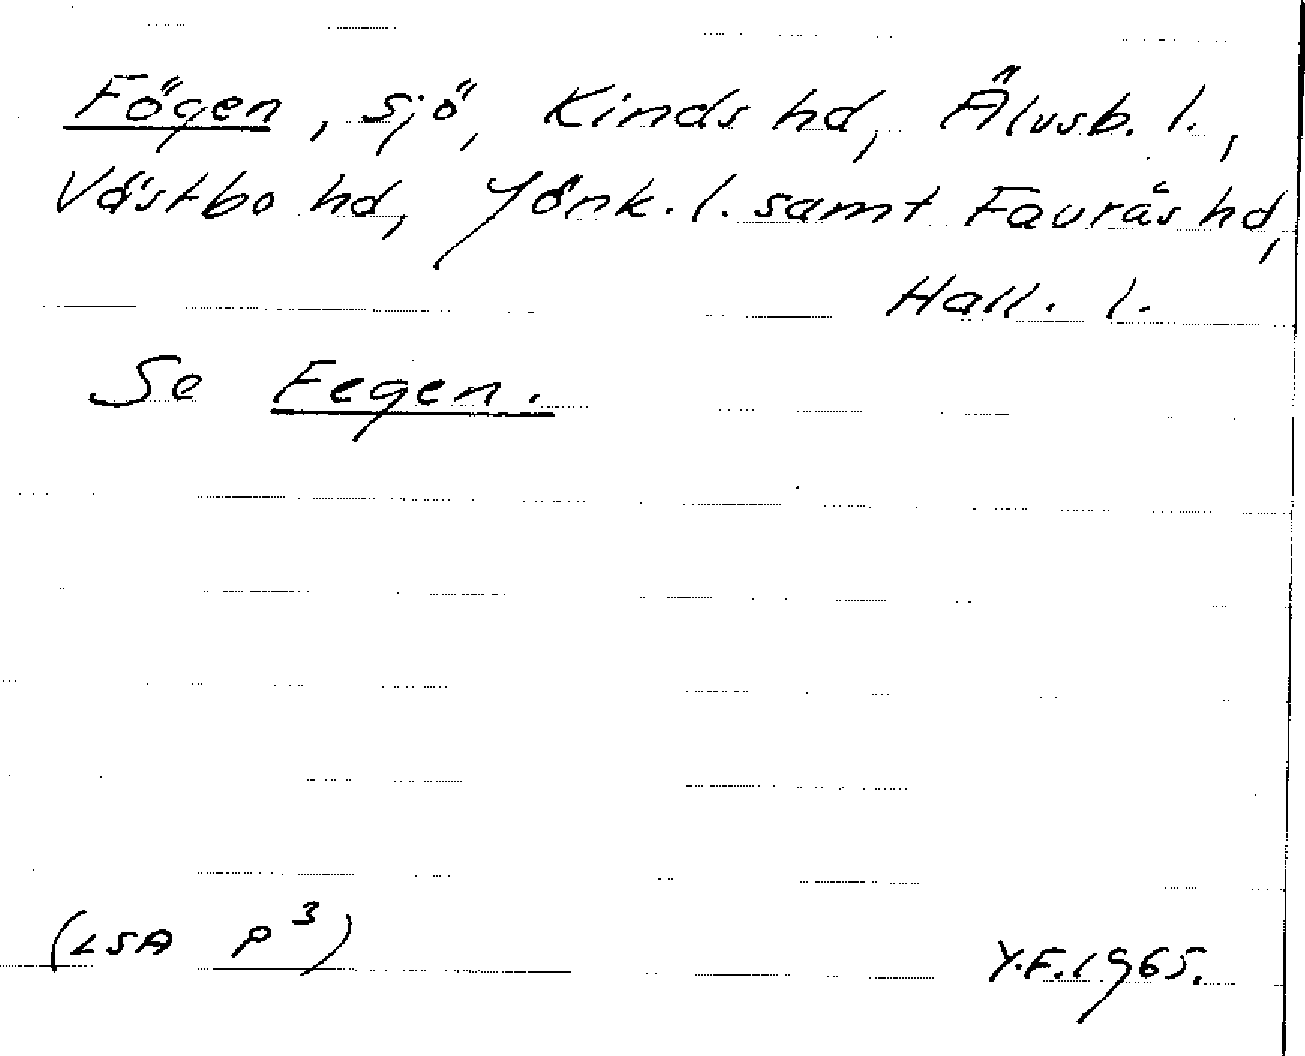 Fögen, sjö, Kinds hd, Älvsb. l.,
Västbo hd, Jönk. l. samt Faurås hd,
Hall. l.
Se Fegen.
(LSA P³)
Y.F. 1965.